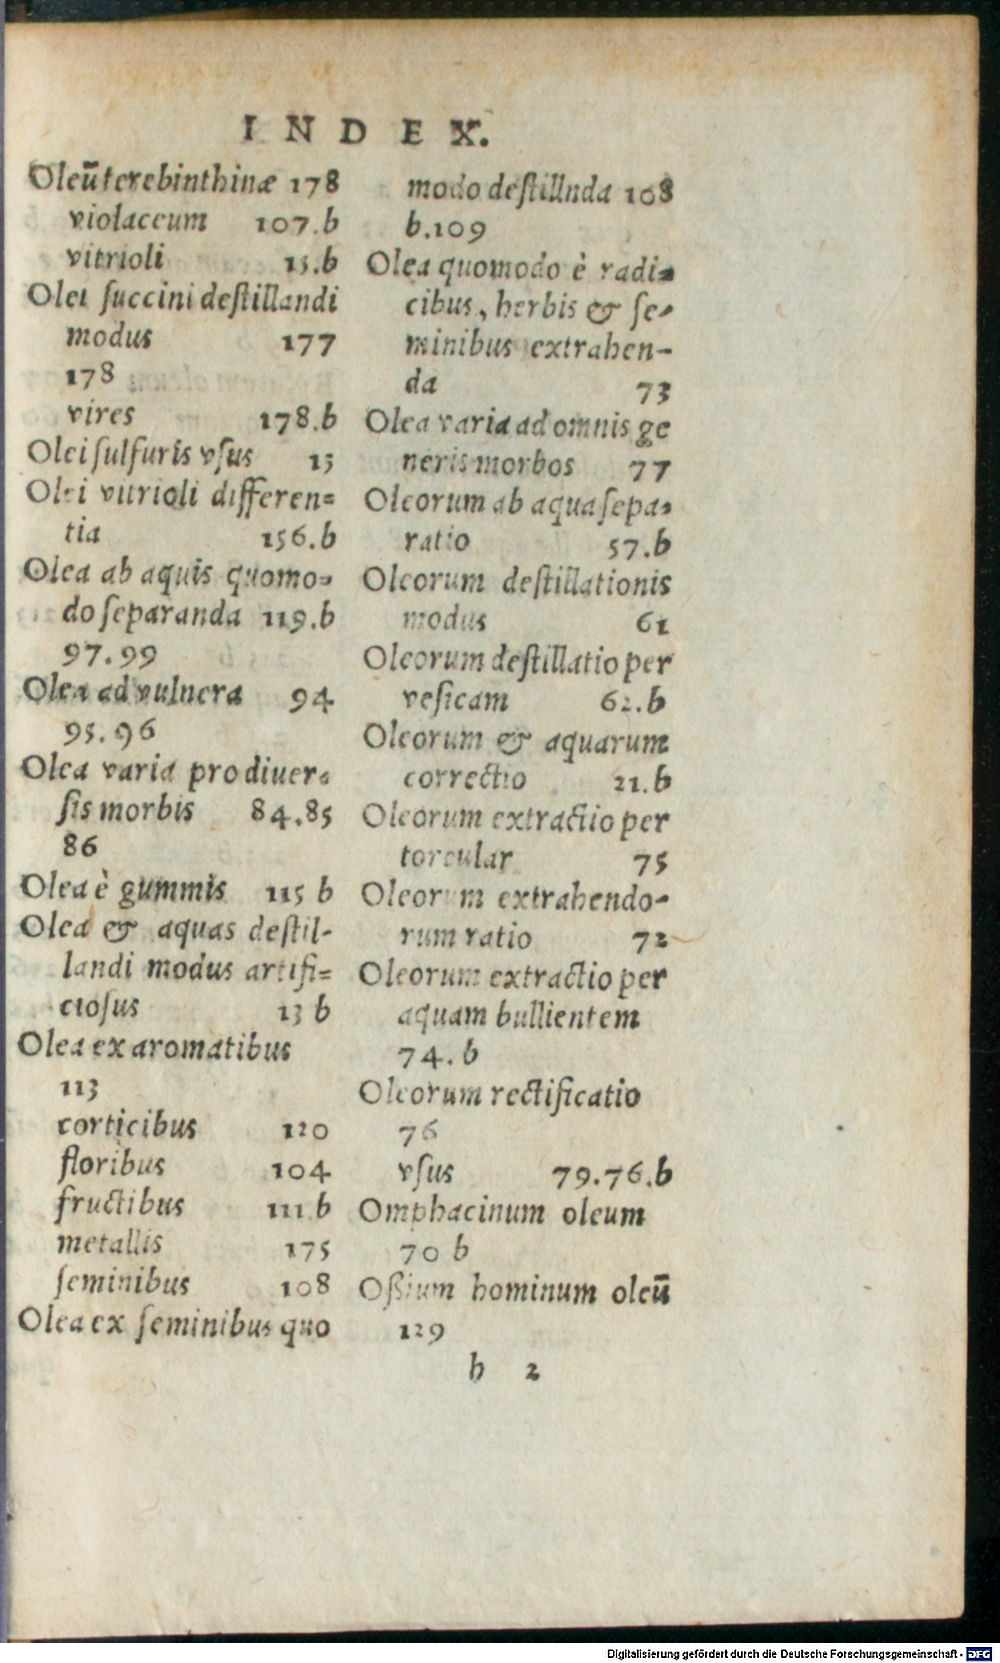 INDEX.
Oleū terebinthinæ 178
violaceum 107.b
vitrioli 15.b
Olei succini destillandi
modus 177
178
vires 178.b
Olei sulfuris vsus 15
Olei vitrioli differen=
tia 156.b
Olea ab aquis quomo=
do separanda 119.b
97.99
Olea ad vulnera 94
95.96
Olea varia pro diuer=
sis morbis 84.85
86
Olea è gummis 115 b
Olea & aquas destil-
landi modus artifi=
ciosus 13 b
Olea ex aromatibus
113
corticibus 120
floribus 104
fructibus 111 b
metallis 175
seminibus 108
Olea ex seminibus quo
modo destillnda 108
b.109
Olea quomodo è radi=
cibus, herbis & se=
minibus extrahen-
da 73
Olea varia ad omnis ge
neris morbos 77
Oleorum ab aqua sepa=
ratio 57.b
Oleorum destillationis
modus 61
Oleorum destillatio per
vesicam 62.b
Oleorum & aquarum
correctio 21.b
Oleorum extractio per
torcular 75
Oleorum extrahendo-
rum ratio 72
Oleorum extractio per
aquam bullientem
74.b
Oleorum rectificatio
76
vsus 79.76.b
Omphacinum oleum
70 b
Oßium hominum oleū
129
b 2
Digitalisierung gefördert durch die Deutsche Forschungsgemeinschaft - DFG